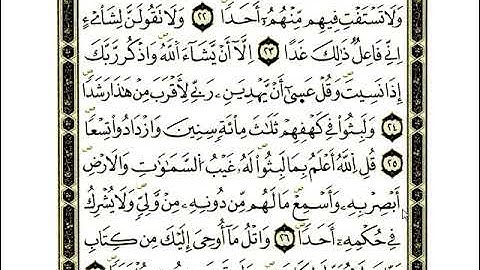 وَلَا تَسْتَفْتِ فِيهِم مِّنْهُمْ أَحَدًا ٢٢ وَلَا تَقُولَنَّ لِشَا۟ىْءٍ
إِنِّي فَاعِلٌ ذَٰلِكَ غَدًا ٢٣ إِلَّا أَن يَشَآءَ ٱللَّهُ وَٱذْكُر رَّبَّكَ
إِذَا نَسِيتَ وَقُلْ عَسَىٰ أَن يَهْدِيَنِ رَبِّي لِأَقْرَبَ مِنْ هَٰذَا رَشَدًا
٢٤ وَلَبِثُوا۟ فِي كَهْفِهِمْ ثَلَٰثَ مِا۟ئَةٍ سِنِينَ وَٱزْدَادُوا۟ تِسْعًا
٢٥ قُلِ ٱللَّهُ أَعْلَمُ بِمَا لَبِثُوا۟ لَهُۥ غَيْبُ ٱلسَّمَٰوَٰتِ وَٱلْأَرْضِ
أَبْصِرْ بِهِۦ وَأَسْمِعْ مَا لَهُم مِّن دُونِهِۦ مِن وَلِيٍّ وَلَا يُشْرِكُ
فِي حُكْمِهِۦٓ أَحَدًا ٢٦ وَٱتْلُ مَآ أُوحِيَ إِلَيْكَ مِن كِتَابِ